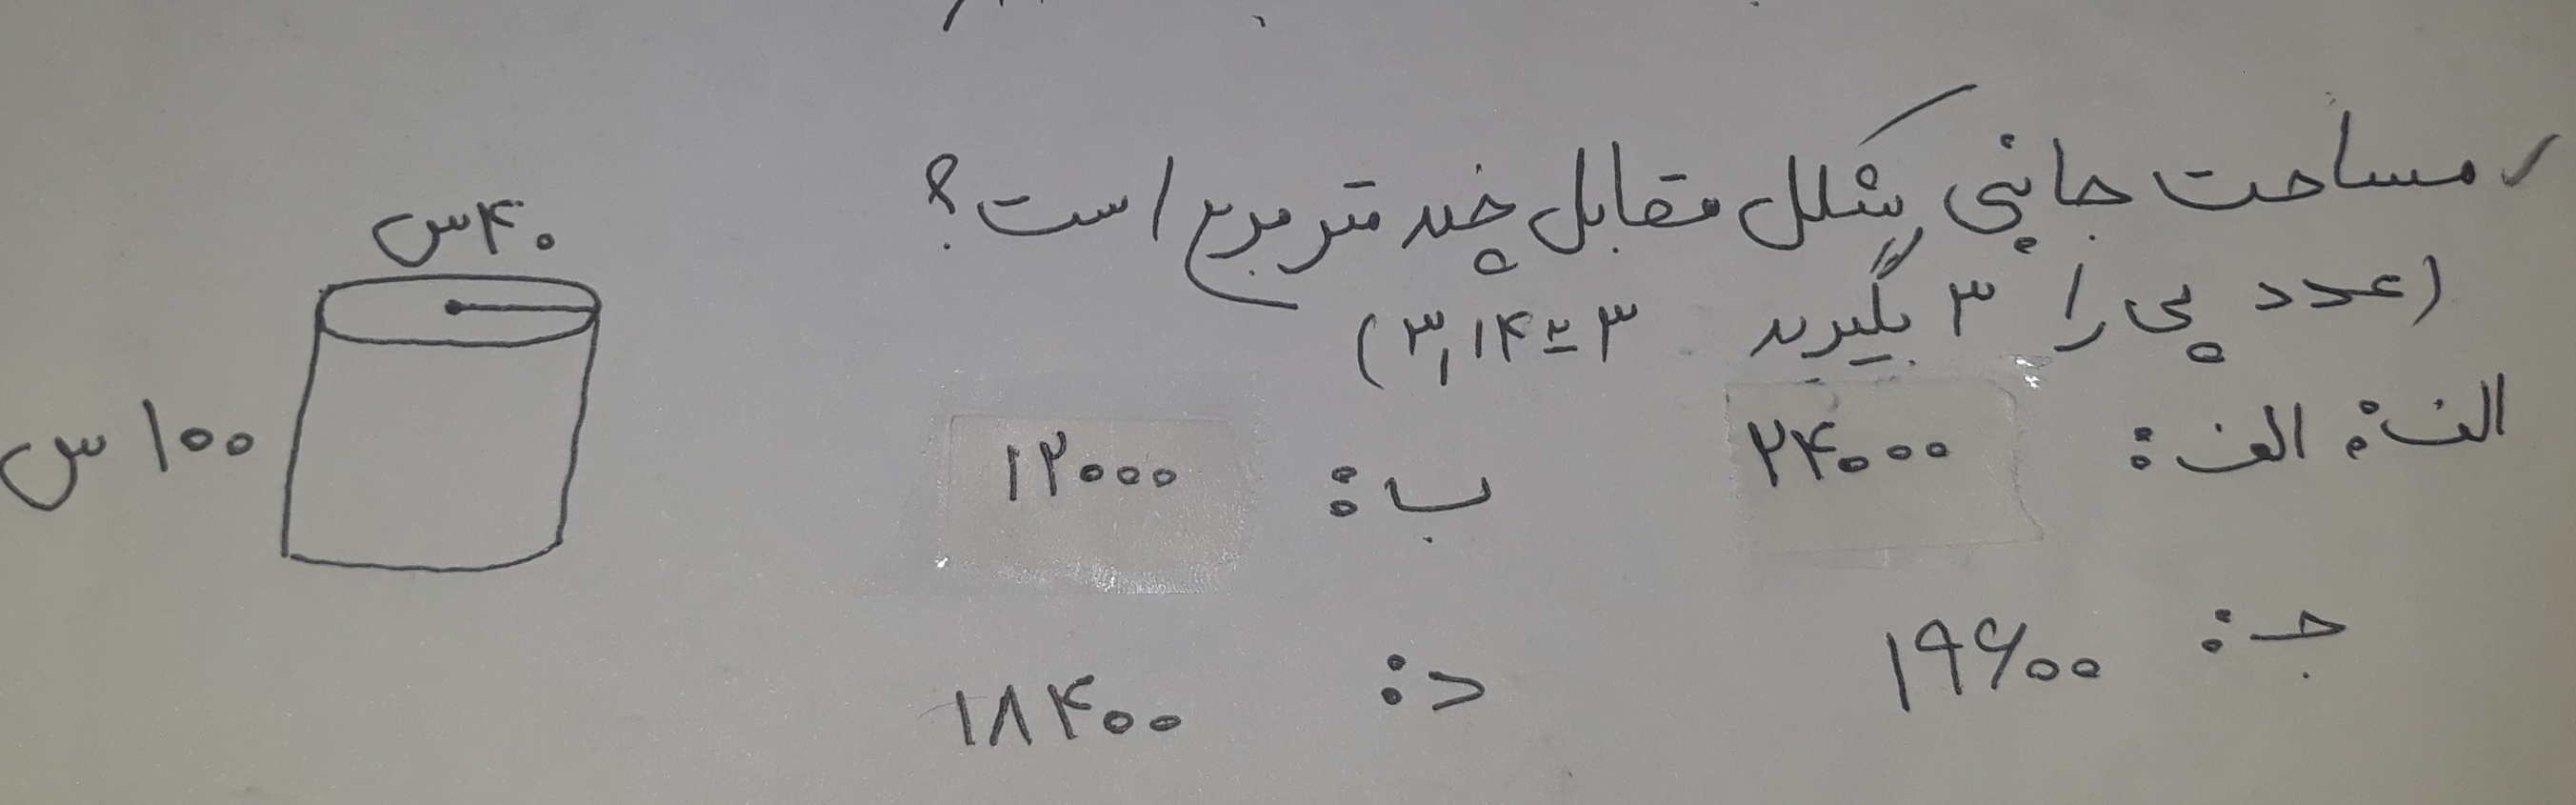 مساحت جانبی شکل مقابل چند متر مربع است؟
(عدد پی را ۳ بگیرید ۳ ≃ ۳,۱۴)
الف: الف: ۲۴۰۰۰
ب: ۱۲۰۰۰
ج: ۱۹۶۰۰
د: ۱۸۴۰۰
۴۰س
۱۰۰ س